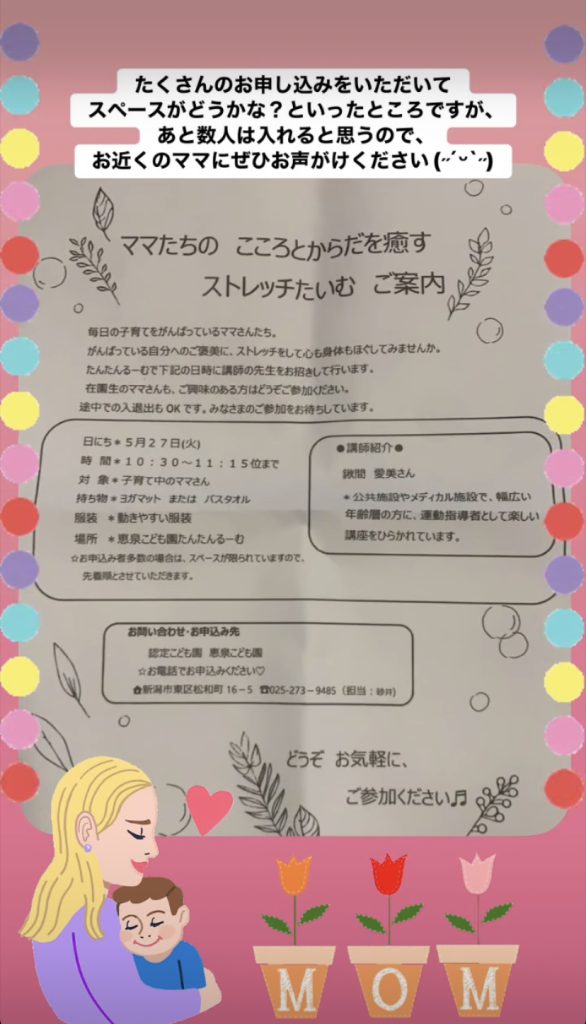 たくさんのお申し込みをいただいて
スペースがどうかな？といったところですが、
あと数人は入れると思うので、
お近くのママにぜひお声がけください(˶´ᵕ`˶)
ママたちの こころとからだを癒す
ストレッチたいむ ご案内
毎日の子育てをがんばっているママさんたち。
がんばっている自分へのご褒美に、ストレッチをして心も身体もほぐしてみませんか。
たんたんるーむで下記の日時に講師の先生をお招きして行います。
在園生のママさんも、ご興味のある方はどうぞご参加ください。
途中での入退出もOKです。みなさまのご参加をお待ちしています。
日にち＊５月２７日(火)
時 間＊１０：３０～１１：１５位まで
対 象＊子育て中のママさん
持ち物＊ヨガマット または バスタオル
服装 ＊動きやすい服装
場所 ＊恵泉こども園たんたんるーむ
☆お申込み者多数の場合は、スペースが限られていますので、
先着順とさせていただきます。
●講師紹介●
鍬間 愛美さん
＊公共施設やメディカル施設で、幅広い
年齢層の方に、運動指導者として楽しい
講座をひらかれています。
お問い合わせ・お申込み先
認定こども園 恵泉こども園
☆お電話でお申込みください♡
新潟市東区松和町16－5 ☎025-273－9485（担当：砂井）
どうぞ お気軽に、
ご参加ください♬
MOM